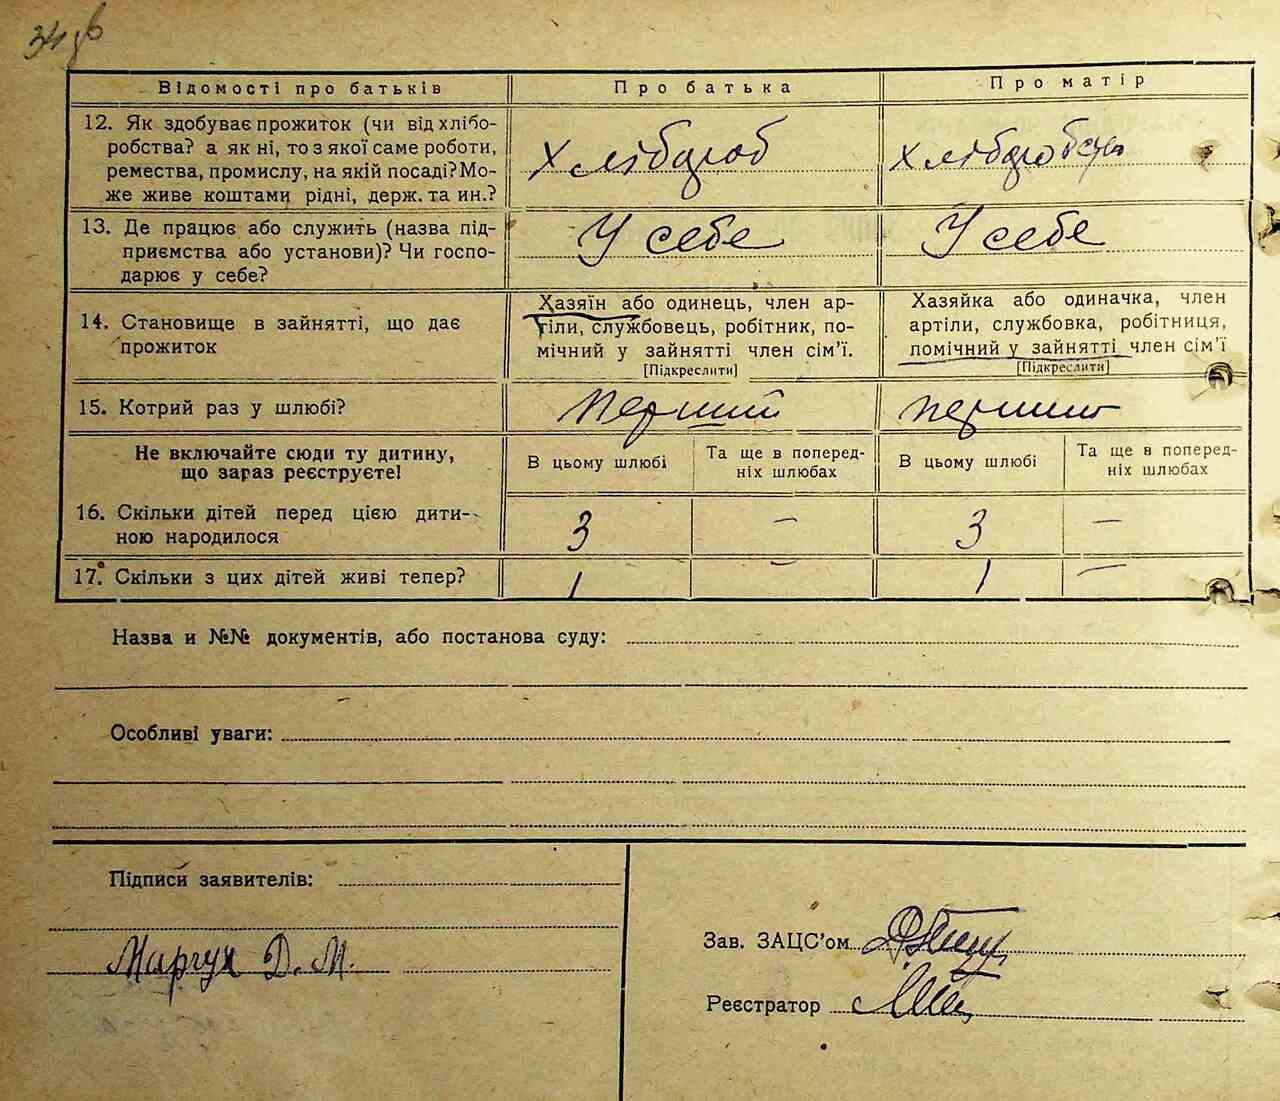 34 зв
Відомості про батьків
Про батька
Про матір
12. Як здобуває прожиток (чи від хлібо-
робства? а як ні, то з якої саме роботи,
ремества, промислу, на якій посаді? Мо-
же живе коштами рідні, держ. та ин.?
Хлібороб
Хліборобство
13. Де працює або служить (назва під-
приємства або установи)? Чи госпо-
дарює у себе?
У себе
У себе
14. Становище в зайнятті, що дає
прожиток
Хазяїн або одинець, член ар-
тіли, службовець, робітник, по-
мічний у зайнятті член сім'ї.
[Підкреслити]
Хазяйка або одиначка, член
артіли, службовка, робітниця,
помічний у зайнятті член сім'ї
[Підкреслити]
15. Котрий раз у шлюбі?
Перший
перший
Не включайте сюди ту дитину,
що зараз реєструєте!
В цьому шлюбі
Та ще в поперед-
ніх шлюбах
В цьому шлюбі
Та ще в поперед-
ніх шлюбах
16. Скільки дітей перед цією дити-
ною народилося
3
—
3
—
17. Скільки з цих дітей живі тепер?
1
—
1
—
Назва и №№ документів, або постанова суду:
Особливі уваги:
Підписи заявителів:
Маргун Д. М.
Зав. ЗАЦС'ом
Реєстратор